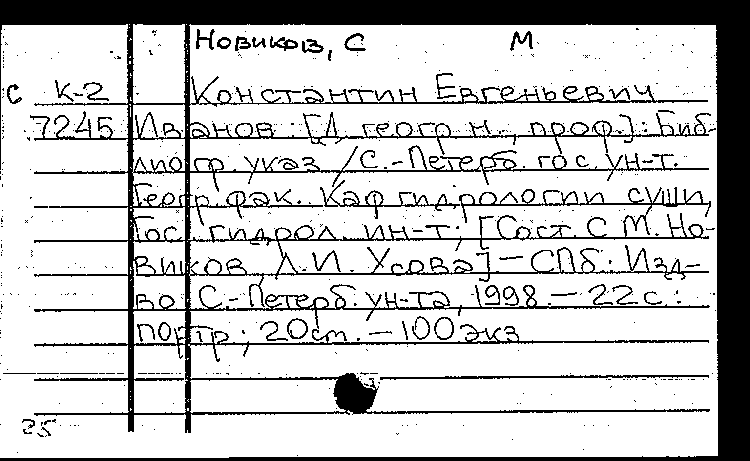 Новиков, С М
С К-2 Константин Евгеньевич
7245 Иванов : [Д. геогр. н., проф.] : Биб-
лиогр. указ / С.-Петерб. гос. ун-т.
Геогр. фак. Каф гидрологии суши,
Гос. гидрол. ин-т; [Сост. С М. Но-
виков, Л.И. Усова] — СПб : Изд-
во С.-Петерб. ун-та, 1998. — 22 с. :
портр ; 20 см. — 100 экз
25